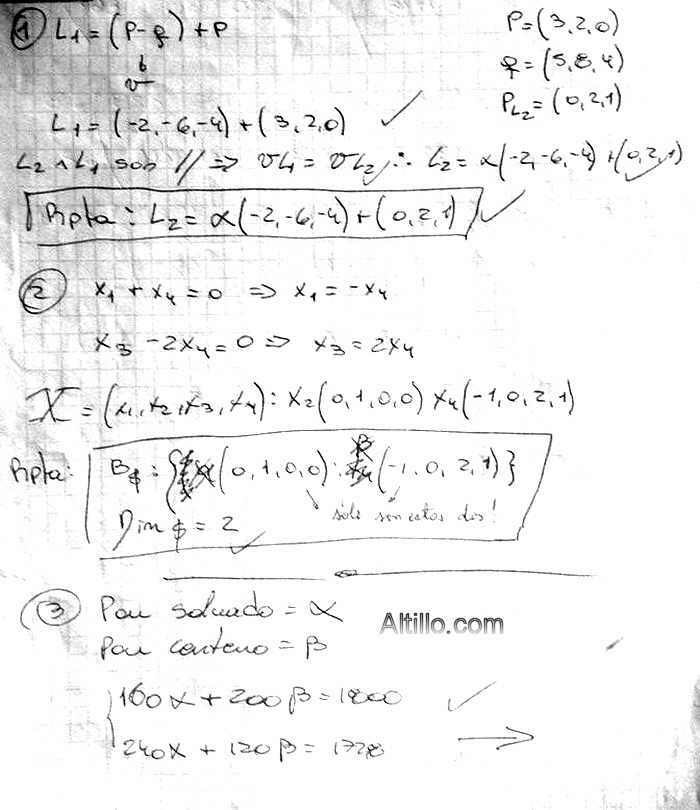 1 L₁ = (P - q) + P
P = (3, 2, 0)
q = (5, 8, 4)
P_L₂ = (0, 2, 1)
L₁ = (-2, -6, -4) + (3, 2, 0) ✓
L₂ ∧ L₁ son // ⇒ vL₁ = vL₂ ∴ L₂ = α(-2, -6, -4) + (0, 2, 1)
Rpta: L₂ = α(-2, -6, -4) + (0, 2, 1) ✓
2 x₁ + x₄ = 0 ⇒ x₁ = -x₄
x₃ - 2x₄ = 0 ⇒ x₃ = 2x₄
X = (x₁, x₂, x₃, x₄) : x₂(0, 1, 0, 0) x₄(-1, 0, 2, 1)
Rpta: B$ : { (0, 1, 0, 0) ; (-1, 0, 2, 1) }
sólo son estos dos!
Dim $ = 2 ✓
3 Pan salvado = α
Altillo.com
Pan centeno = β
160α + 200β = 1800 ✓
240α + 120β = 1728 →